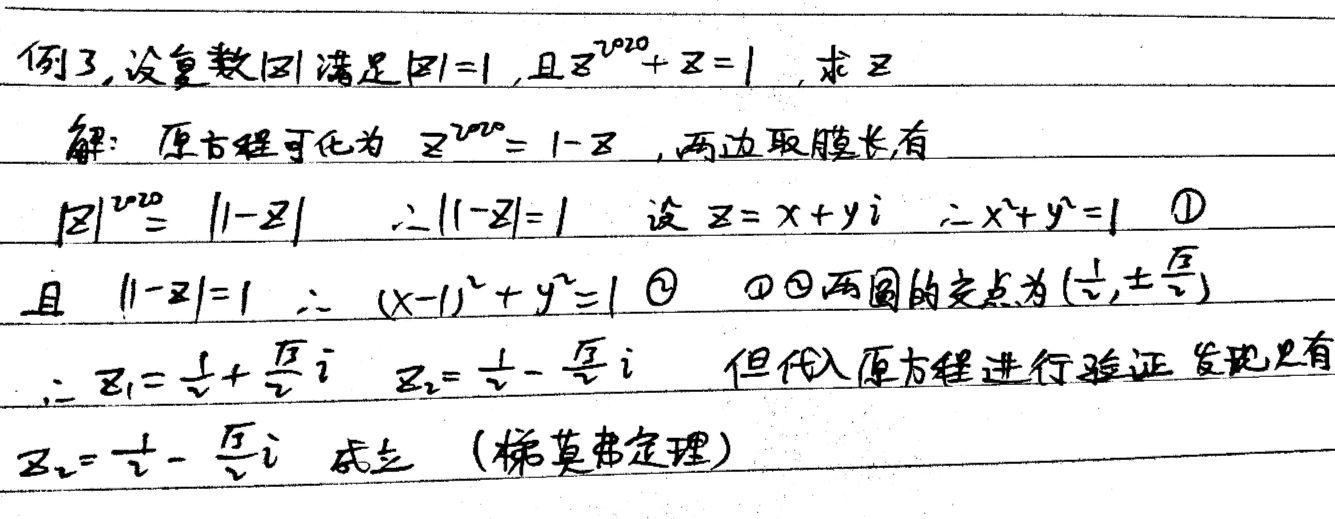 例3,设复数|z|满足|z|=1,且z^2020+z=1,求z
解:原方程可化为 z^2020=1-z,两边取膜长,有
|z|^2020=|1-z| ∴|1-z|=1 设z=x+yi ∴x²+y²=1 ①
且 |1-z|=1 ∴ (x-1)²+y²=1 ② ①②两圆的交点为(1/2,±√3/2)
∴z₁=1/2+√3/2 i z₂=1/2-√3/2 i 但代入原方程进行验证 发现只有
z₂=1/2-√3/2 i 成立 (梯莫弗定理)